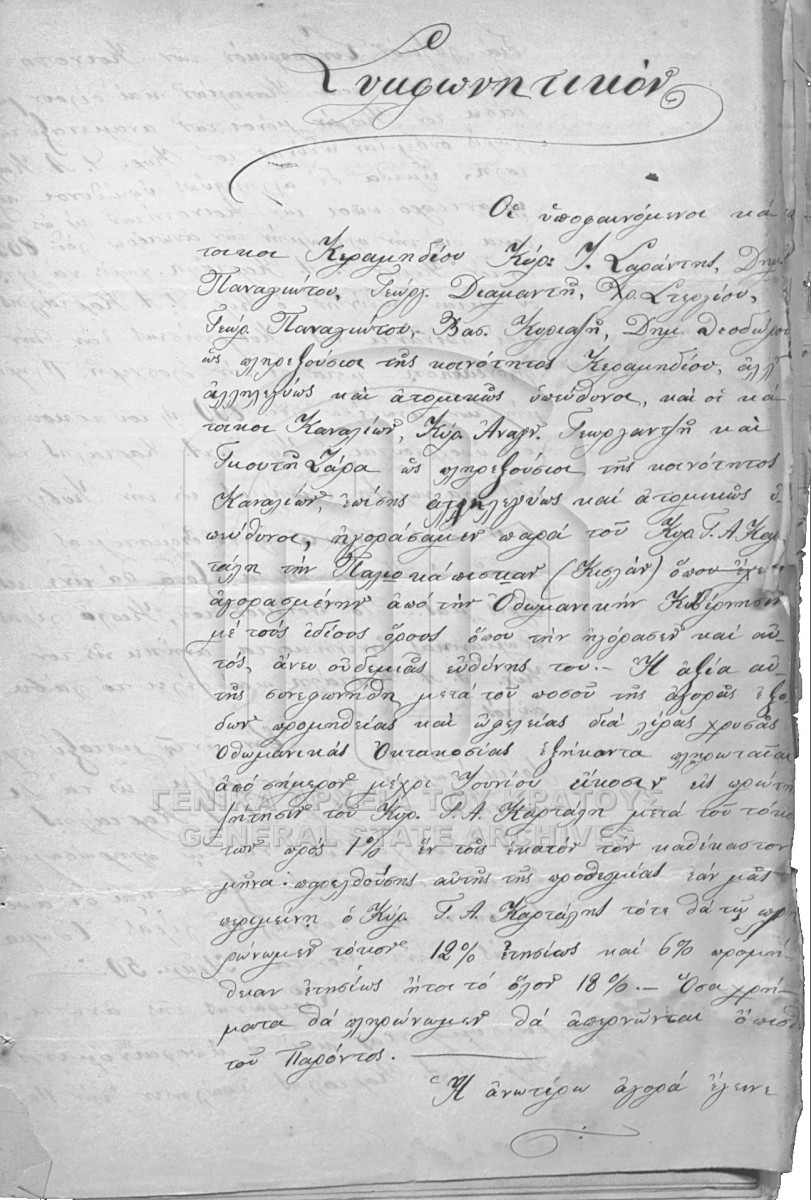 Συμφωνητικόν
Οἱ ὑποφαινόμενοι κά
τοικοι Κεραμηδίου Κύρ: Ἰ. Σαράντης, Δημ.
Παναγιώτου, Γεώργ. Διαμαντῆ, Χρ. Στεργίου,
Γεώρ. Παναγιώτου, Βασ. Κυριαζῆ, Δημ. Θεοδώρου
ὡς πληρεξούσιοι τῆς κοινότητος Κεραμηδίου, ἀλλ
ἀλληλεγύως καὶ ἀτομικῶς ὑπεύθυνοι, καὶ οἱ κά
τοικοι Καναλίων, Κύρ. Ἀναγν. Γεωργαντζῆ καὶ
Γκουτῆ Ζάρα ὡς πληρεξούσιοι τῆς κοινότητος
Καναλίων, ἐπίσης ἀλληλεγύως καὶ ἀτομικῶς ὑ-
πεύθυνοι, ἠγοράσαμεν παρά τοῦ Κυρ. Γ. Α. Καρ
τάλη τὴν Παλιοκάπισταν (Κισλᾶν) ὅπου ἔχει
ἀγορασμένην ἀπό τὴν Ὀθωμανικήν Κυβέρνησιν
μέ τούς ἰδίους ὅρους ὅπου τὴν ἠγόρασεν καὶ αὐ-
τός, ἄνευ οὐδεμιᾶς εὐθύνης του. — Ἡ ἀξία αὐ-
τῆς συνεφωνήθη μετά τοῦ ποσοῦ τῆς ἀγορᾶς ἐξό
δων προμηθείας καὶ ὠφελείας διά λίρας χρυσᾶς
Ὀθωμανικάς Ὀκτακοσίας ἑξήκοντα πληρωταίας
ἀπό σήμερον μέχρι Ἰουνίου εἴκοσιν εἰς πρώτην
ζήτησιν τοῦ Κυρ. Γ. Α. Καρτάλη μετά τοῦ τόκου
των πρός 1% ἕν τοῖς ἑκατόν τον καθέκαστον
μῆνα· παρελθούσης αὐτῆς τῆς προθεσμίας ἐάν μᾶς
περιμείνῃ ὁ Κύρ. Γ. Α. Καρτάλης τότε θά τῷ πλη
ρώνωμεν τόκον 12% ἐτησίως καί 6% προμή-
θειαν ἐτησίως ἤτοι τό ὅλον 18%. — Ὅσα χρή-
ματα θά πληρώνωμεν θά ἀπερνῶνται ὄπισθ
τοῦ Παρόντος.
Ἡ ἀνωτέρω ἀγορά ἔγεινε
ΓΕΝΙΚΑ ΑΡΧΕΙΑ ΤΟΥ ΚΡΑΤΟΥΣ
GENERAL STATE ARCHIVES